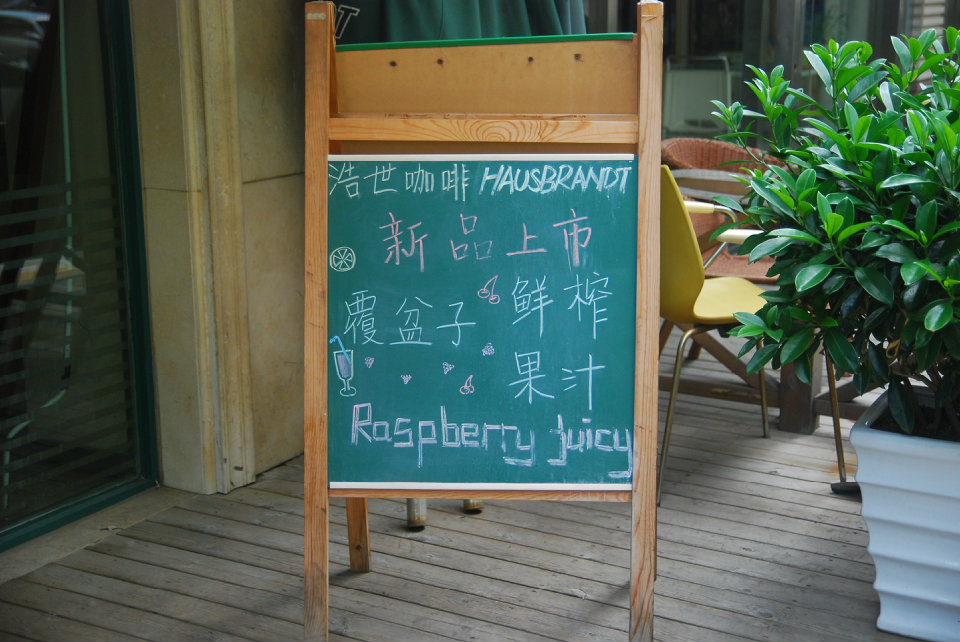 浩世咖啡 HAUSBRANDT
新品上市
覆盆子 鲜榨
果汁
Raspberry juicy